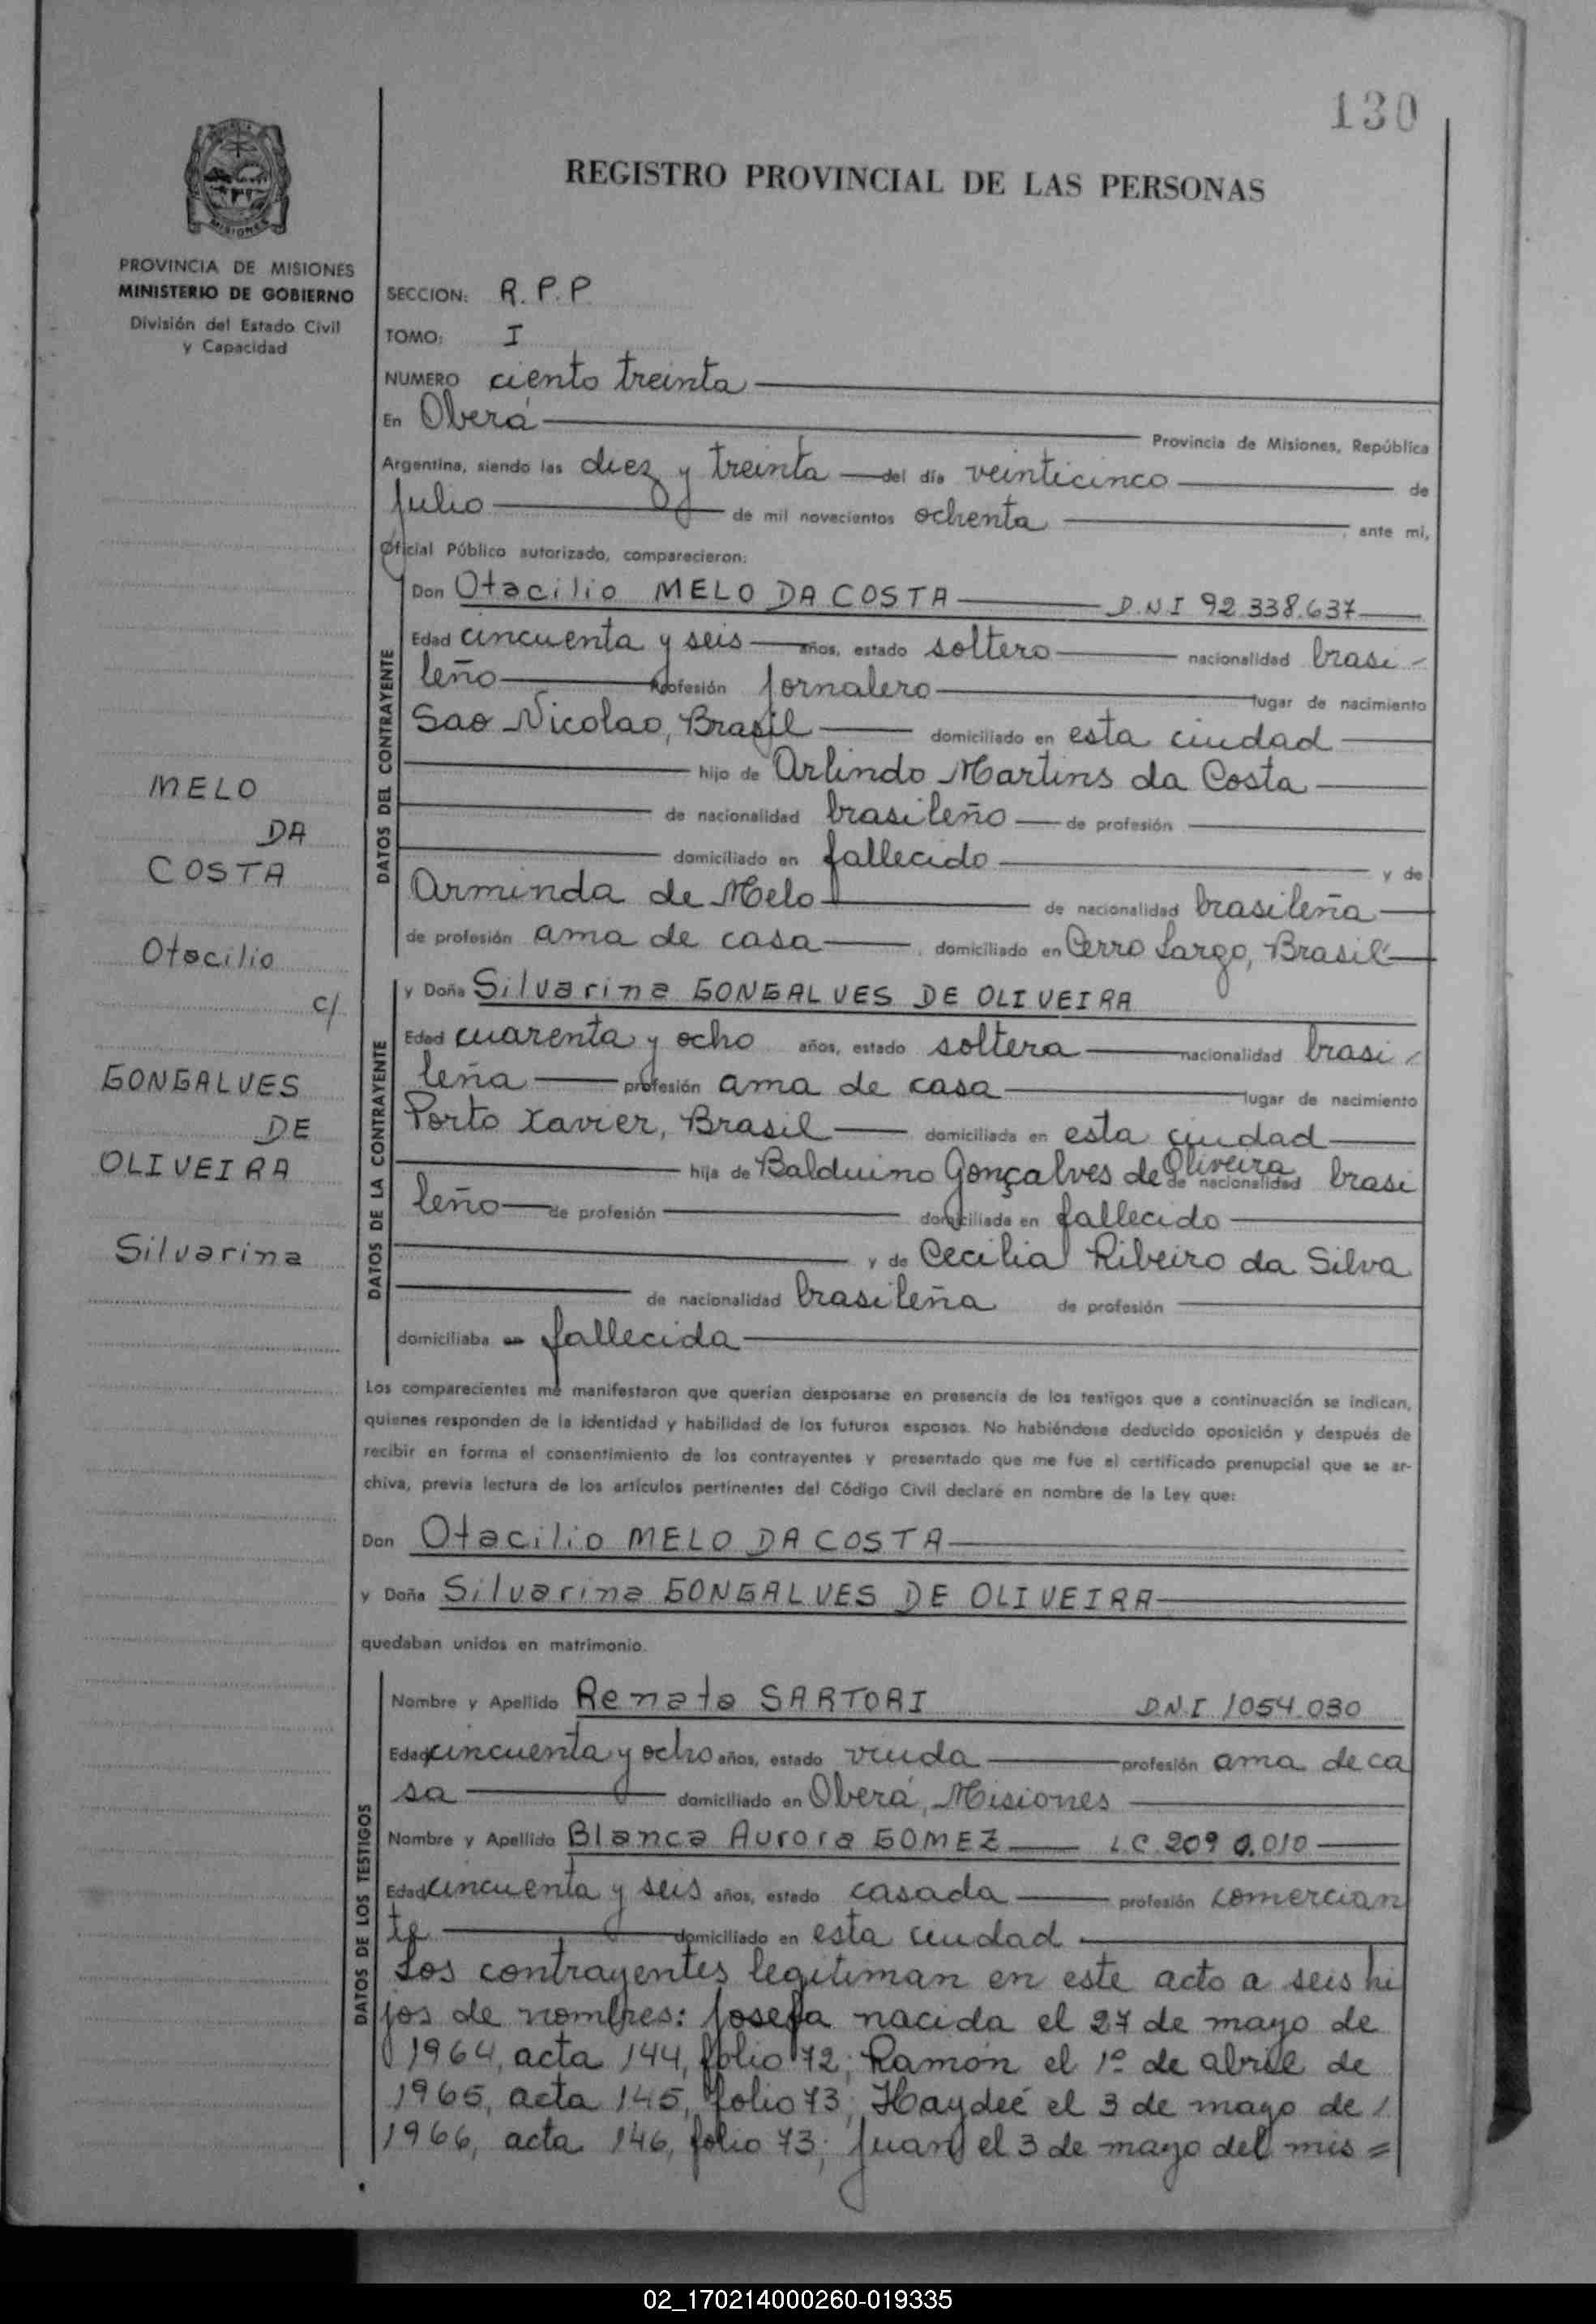 130
REGISTRO PROVINCIAL DE LAS PERSONAS
MISIONES
PROVINCIA DE MISIONES
MINISTERIO DE GOBIERNO
División del Estado Civil
y Capacidad
SECCION: R.P.P
TOMO: I
NUMERO ciento treinta
En Oberá Provincia de Misiones, República
Argentina, siendo las diez y treinta del día veinticinco de
Julio de mil novecientos ochenta, ante mi,
Oficial Público autorizado, comparecieron:
DATOS DEL CONTRAYENTE
Don Otacilio MELO DA COSTA D.N.I 92.338.637
Edad cincuenta y seis años, estado soltero nacionalidad brasi-
leño Profesión Jornalero lugar de nacimiento
Sao Nicolao, Brasil domiciliado en esta ciudad
hijo de Arlindo Martins da Costa
de nacionalidad brasileño de profesión
domiciliado en fallecido y de
Arminda de Melo de nacionalidad brasileña
de profesión ama de casa, domiciliado en Cerro Largo, Brasil
MELO
DA
COSTA
Otacilio
c/
GONGALVES
DE
OLIVEIRA
Silvarina
DATOS DE LA CONTRAYENTE
y Doña Silvarina GONGALVES DE OLIVEIRA
Edad cuarenta y ocho años, estado soltera nacionalidad brasi-
leña profesión ama de casa lugar de nacimiento
Porto Xavier, Brasil domiciliada en esta ciudad
hija de Balduino Gonçalves de Oliveira de nacionalidad brasi
leño de profesión domiciliada en fallecido
y de Cecilia Ribeiro da Silva
de nacionalidad brasileña de profesión
domiciliaba en fallecida
Los comparecientes me manifestaron que querían desposarse en presencia de los testigos que a continuación se indican,
quienes responden de la identidad y habilidad de los futuros esposos. No habiéndose deducido oposición y después de
recibir en forma el consentimiento de los contrayentes y presentado que me fue el certificado prenupcial que se ar-
chiva, previa lectura de los artículos pertinentes del Código Civil declaré en nombre de la Ley que:
Don Otacilio MELO DA COSTA
y Doña Silvarina GONGALVES DE OLIVEIRA
quedaban unidos en matrimonio.
DATOS DE LOS TESTIGOS
Nombre y Apellido Renata SARTORI D.N.I 1054.030
Edad cincuenta y ocho años, estado viuda profesión ama de ca
sa domiciliado en Oberá, Misiones
Nombre y Apellido Blanca Aurora GOMEZ L.C. 209 0.010
Edad cincuenta y seis años, estado casada profesión comercian
te domiciliado en esta ciudad
Los contrayentes legitiman en este acto a seis hi
jos de nombres: Josefa nacida el 27 de mayo de
1964, acta 144, folio 72; Ramón el 1º de abril de
1965, acta 145, folio 73; Haydeé el 3 de mayo de
1966, acta 146, folio 73; Juan el 3 de mayo del mis=
02_170214000260-019335